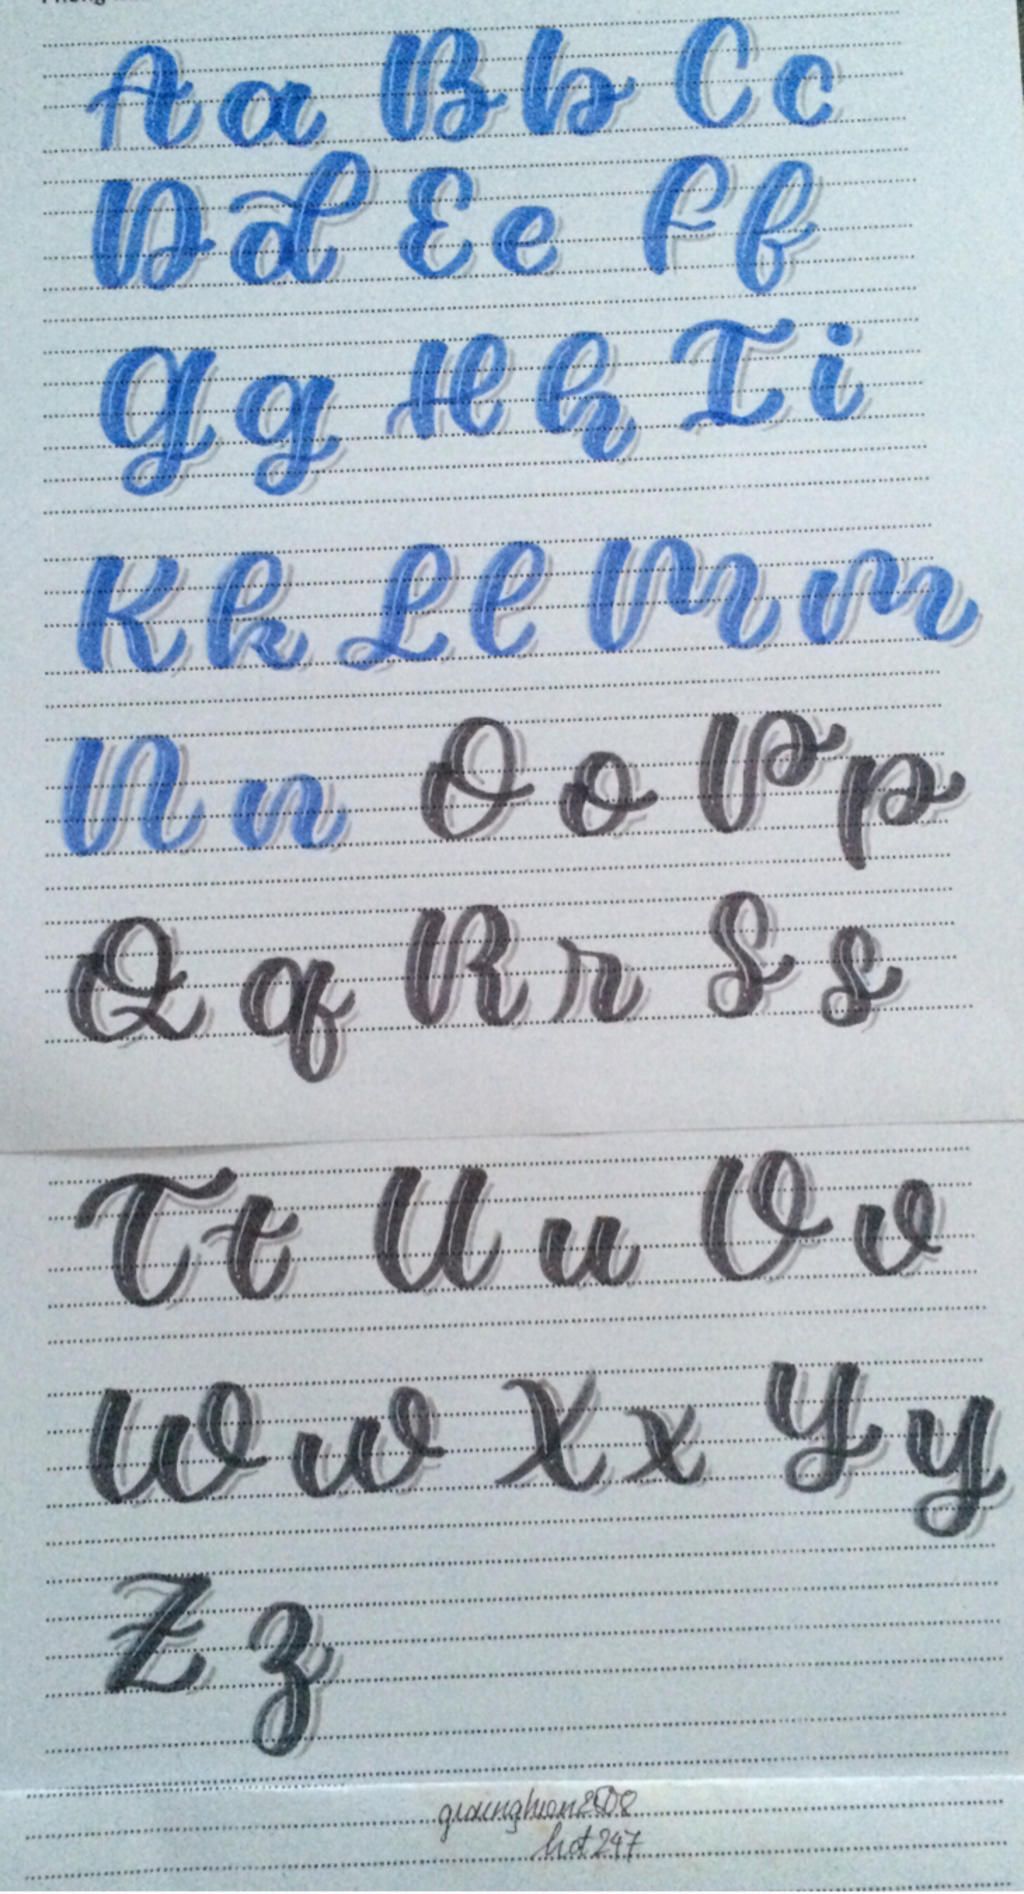 Aa Bb Cc
Dd Ee Ff
Gg Hh Ii
Kk Ll Mm
Nn Oo Pp
Qq Rr Ss
Tt Uu Vv
Ww Xx Yy
Zz
hot247